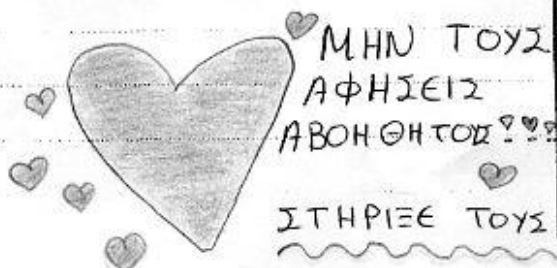 ΜΗΝ ΤΟΥΣ
ΑΦΗΣΕΙΣ
ΑΒΟΗΘΗΤΟΥΣ!!!
ΣΤΗΡΙΞΕ ΤΟΥΣ